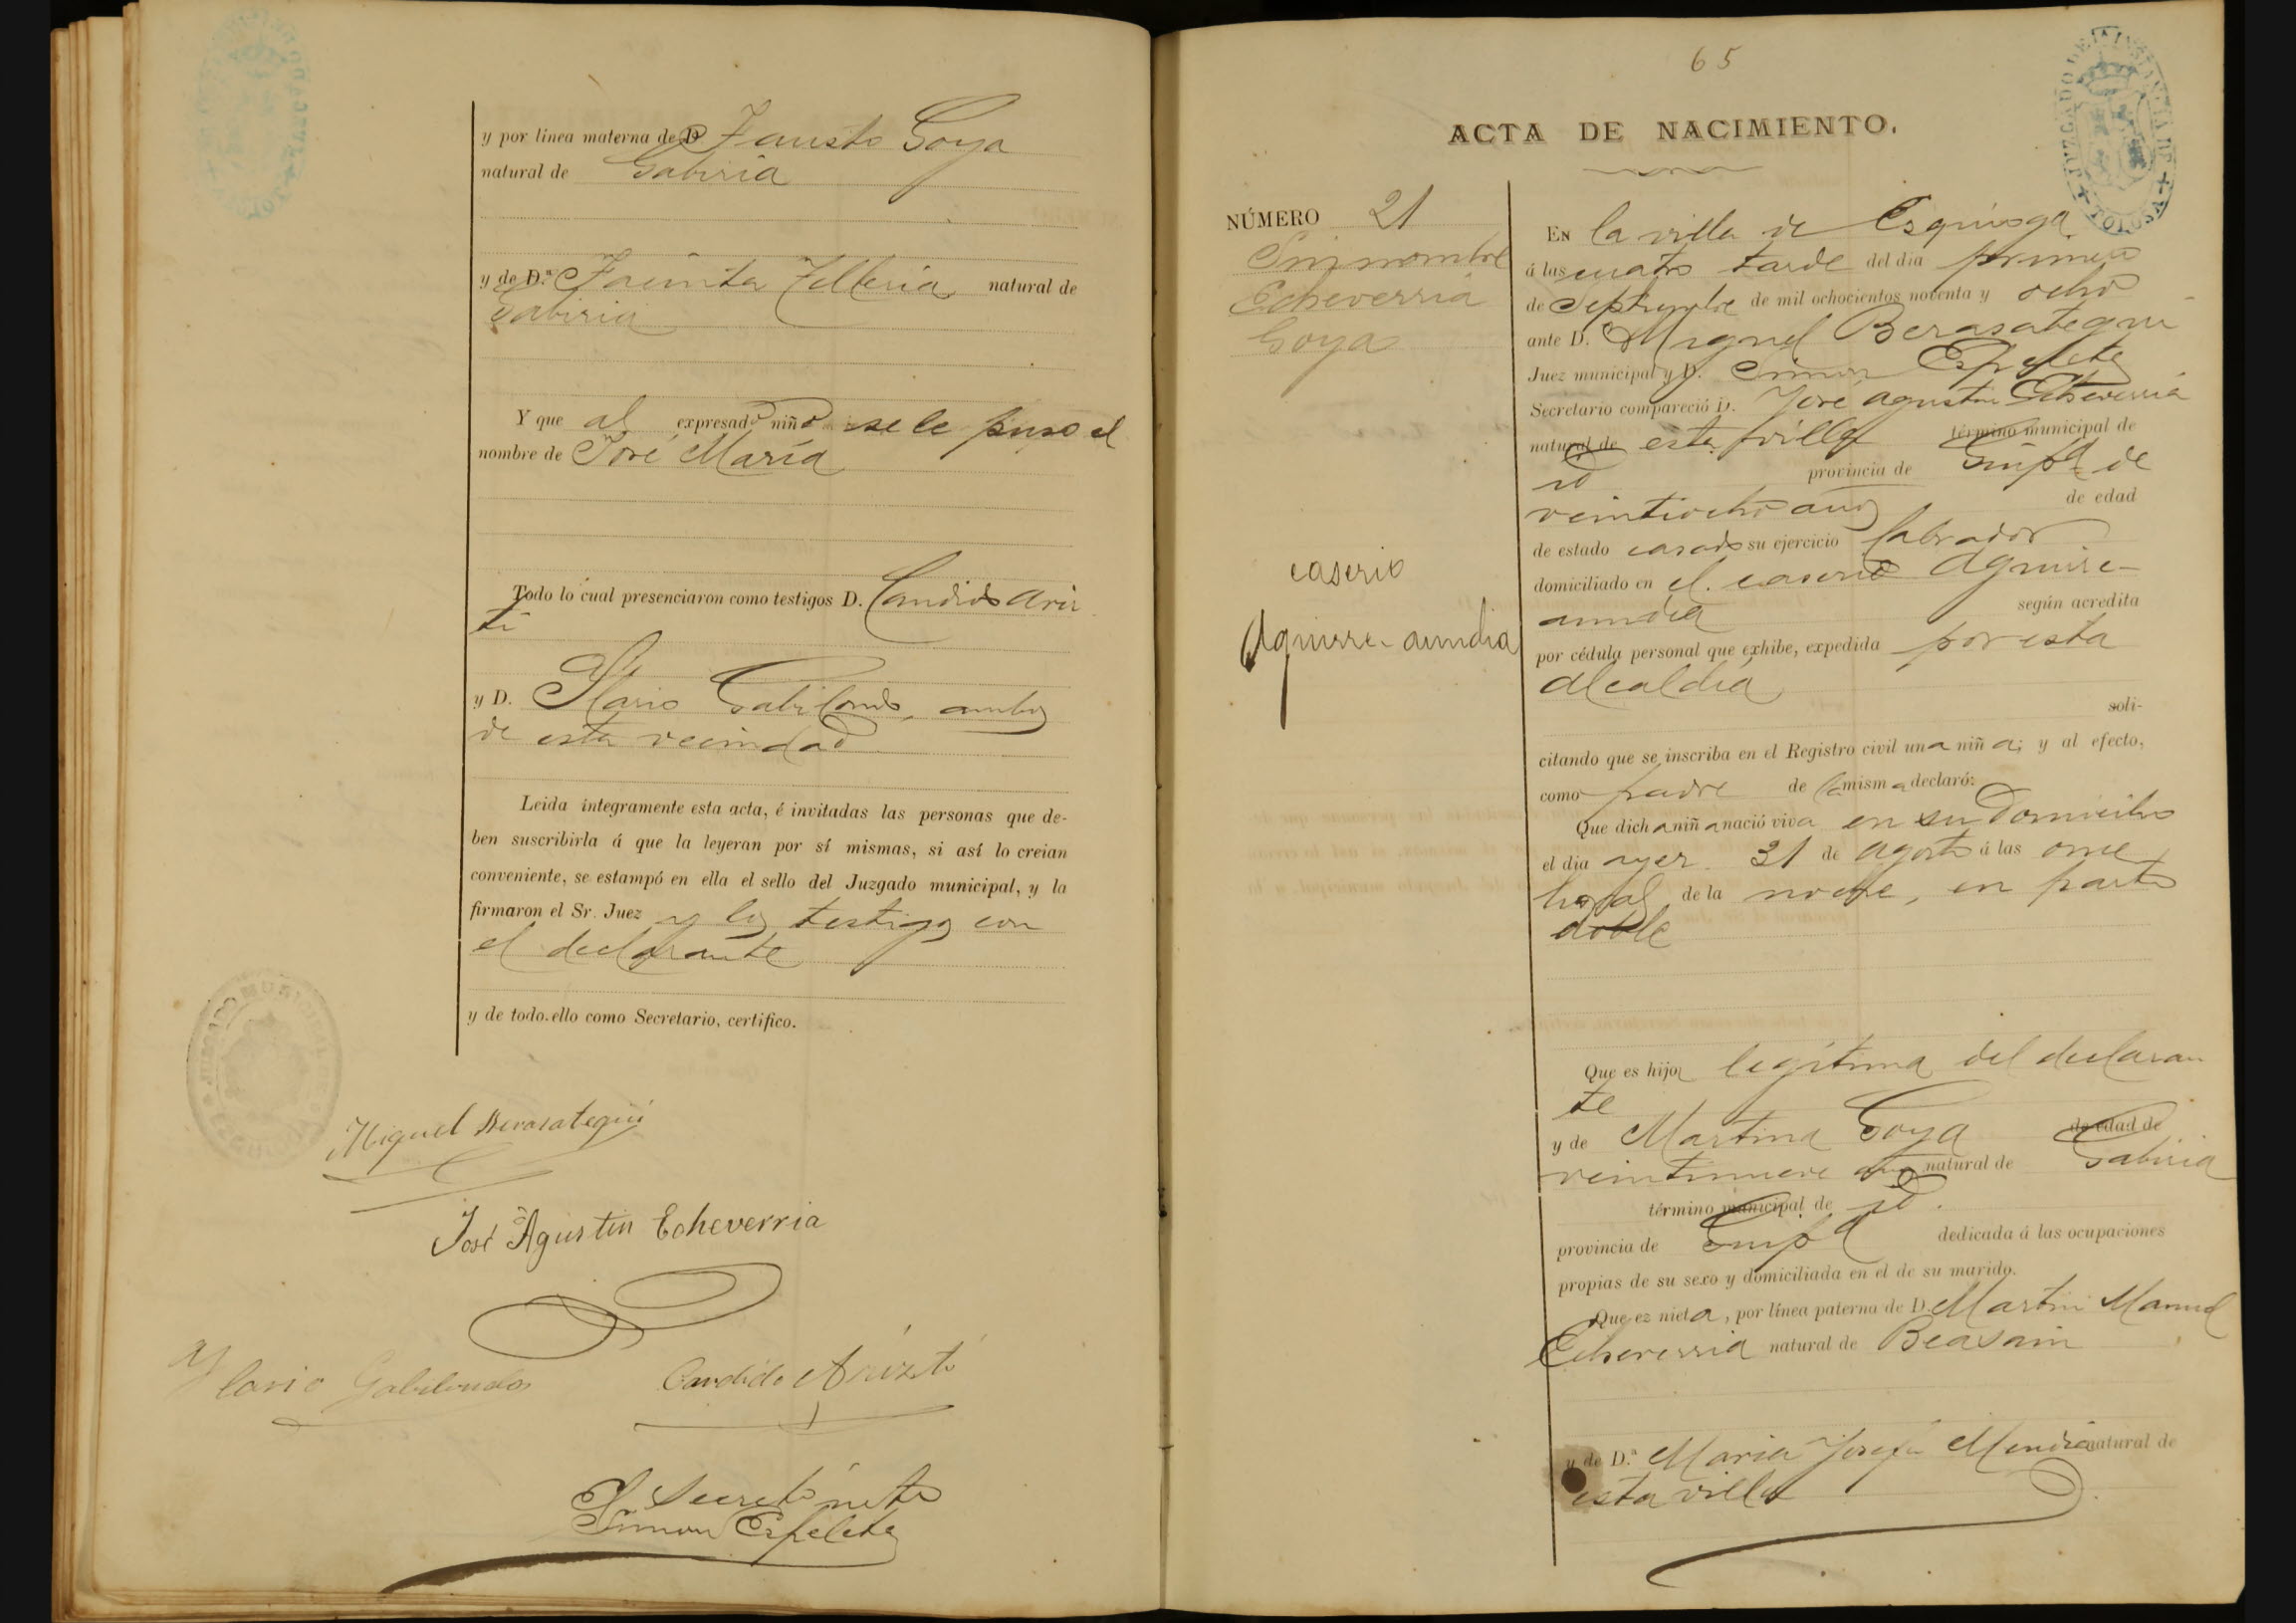 y por línea materna de D. Fausto Goya
natural de Gabiria
y de D.ª Jacinta Telleria natural de
Gabiria
Y que al expresado niño se le puso el
nombre de José María
Todo lo cual presenciaron como testigos D. Candido Ariz
ti
y D. Ylario Gabilondo, ambos
de esta vecindad
Leida íntegramente esta acta, é invitadas las personas que de-
ben suscribirla á que la leyeran por sí mismas, si así lo creian
conveniente, se estampó en ella el sello del Juzgado municipal, y la
firmaron el Sr. Juez y los testigos con
el declarante
y de todo ello como Secretario, certifico.
Miguel Berasategui
José Agustin Echeverria
Ylario Gabilondo
Candido Arizti
Simon Espeleta
65
ACTA DE NACIMIENTO.
NÚMERO 21
Sin nombre
Echeverria
Goya
caserio
Aguirre-aundia
En la villa de Esquioga
á las cuatro tarde del dia primero
de Septiembre de mil ochocientos noventa y ocho
ante D. Miguel Berasategui
Juez municipal y D. Simon Espeleta
Secretario compareció D. José Agustin Echeverria
natural de esta villa término municipal de
id provincia de Guip.ª de
veintiocho años de edad
de estado casado su ejercicio labrador
domiciliado en el caserio Aguirre-
aundia según acredita
por cédula personal que exhibe, expedida por esta
Alcaldia
soli-
citando que se inscriba en el Registro civil una niña; y al efecto,
como padre de la misma declaró:
Que dicha niña nació viva en su Domicilio
el dia ayer 31 de Agosto á las once
horas de la noche, en parto
doble
Que es hija legítima del declaran
te
y de Martina Goya de edad de
veintinueve años natural de Gabiria
término municipal de id.
provincia de Guip.ª dedicada á las ocupaciones
propias de su sexo y domiciliada en el de su marido.
Que ez nieta, por línea paterna de D. Martin Manuel
Echeverria natural de Beasain
y de D.ª Maria Josefa Mendia natural de
esta villa